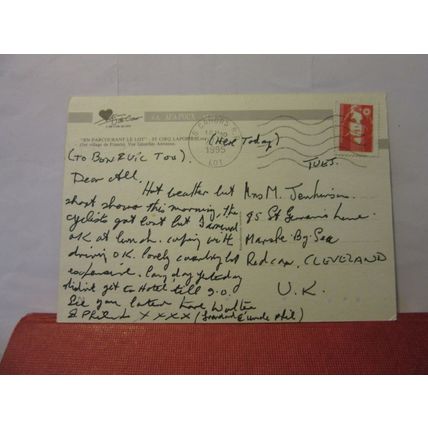 "EN PARCOURANT LE LOT" - ST CIRQ LAPOPIE
(1er village de France). Vue Générale Aérienne.
1995
LOT
(Here Today)
(TO BONZUIC TOO).
TUES.
Dear All.
Hot weather but
short shows this morning, the
cyclists got lost but I arrived
OK at lunch. coping with
driving O.K. lovely country but
expensive. Long day yesterday
didn't get to Hotel till 9.0.
See you later love Walter
& Philip X X X X (Grandad & uncle Phil)
Mrs M. Jenkinson.
95 St Germain's Lane.
Marske-By-Sea
Redcar. CLEVELAND
U.K.